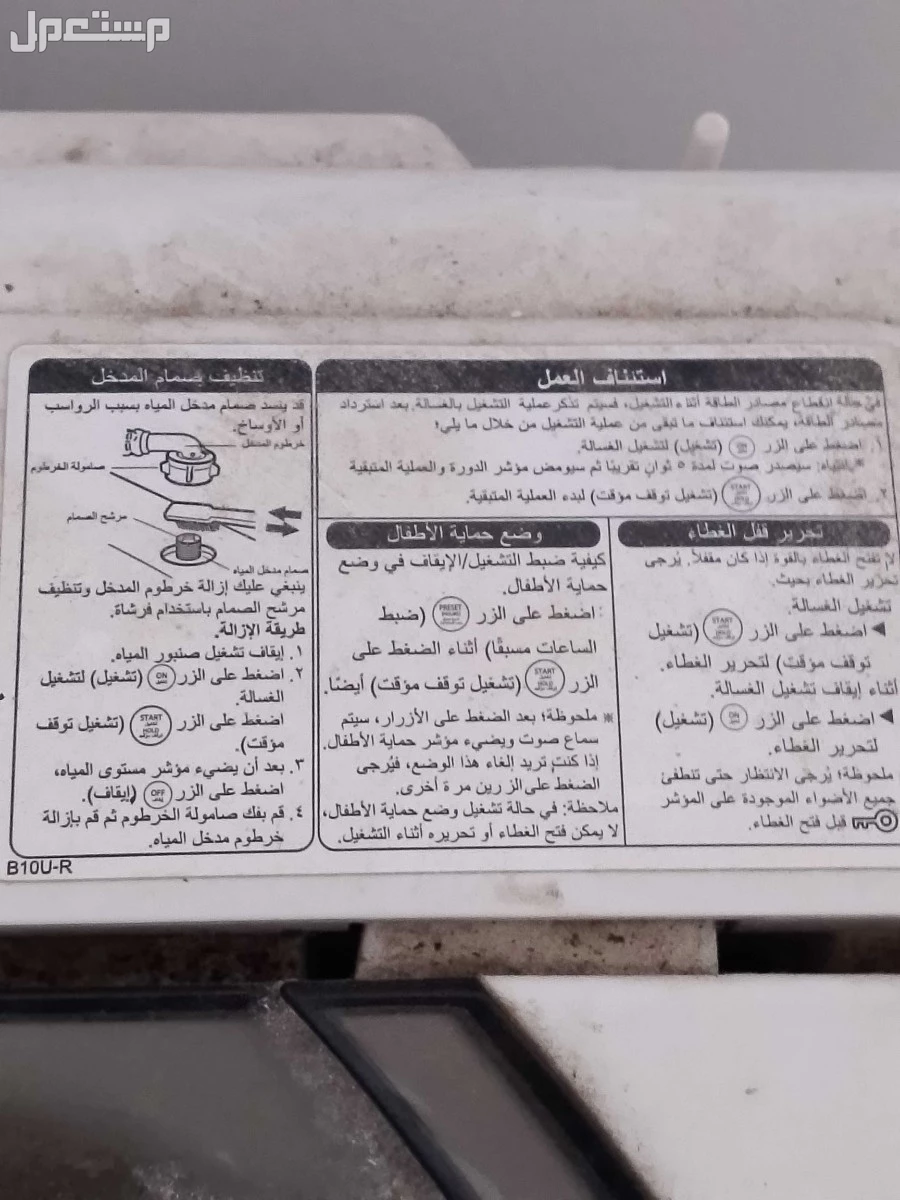 مستعمل
استئناف العمل
في حالة انقطاع مصادر الطاقة أثناء التشغيل، فسيتم تذكر عملية التشغيل بالغسالة. بعد استرداد
مصادر الطاقة، يمكنك استئناف ما تبقى من عملية التشغيل من خلال ما يلي:
١. اضغط على الزر ON (تشغيل) لتشغيل الغسالة.
*بانتباه: سيصدر صوت لمدة ٥ ثوانٍ تقريبًا ثم سيومض مؤشر الدورة والعملية المتبقية
٢. اضغط على الزر START HOLD (تشغيل توقف مؤقت) لبدء العملية المتبقية.
تحرير قفل الغطاء
لا تفتح الغطاء بالقوة إذا كان مقفلاً. يُرجى
تحرير الغطاء بحيث.
تشغيل الغسالة.
◀ اضغط على الزر START HOLD (تشغيل
توقف مؤقت) لتحرير الغطاء.
أثناء إيقاف تشغيل الغسالة.
◀ اضغط على الزر ON (تشغيل)
لتحرير الغطاء.
ملحوظة: يُرجى الانتظار حتى تنطفئ
جميع الأضواء الموجودة على المؤشر
قبل فتح الغطاء.
وضع حماية الأطفال
كيفية ضبط التشغيل/الإيقاف في وضع
حماية الأطفال.
: اضغط على الزر PRESET (ضبط
الساعات مسبقًا) أثناء الضغط على
الزر START HOLD (تشغيل توقف مؤقت) أيضًا.
※ ملحوظة: بعد الضغط على الأزرار، سيتم
سماع صوت ويضيء مؤشر حماية الأطفال.
إذا كنت تريد إلغاء هذا الوضع، فيُرجى
الضغط على الزرين مرة أخرى.
ملاحظة: في حالة تشغيل وضع حماية الأطفال،
لا يمكن فتح الغطاء أو تحريره أثناء التشغيل.
تنظيف صمام المدخل
قد ينسد صمام مدخل المياه بسبب الرواسب
أو الأوساخ.
خرطوم المدخل
صامولة الخرطوم
مرشح الصمام
صمام مدخل المياه
ينبغي عليك إزالة خرطوم المدخل وتنظيف
مرشح الصمام باستخدام فرشاة.
طريقة الإزالة.
١. إيقاف تشغيل صنبور المياه.
٢. اضغط على الزر ON (تشغيل) لتشغيل
الغسالة.
اضغط على الزر START HOLD (تشغيل توقف
مؤقت).
٣. بعد أن يضيء مؤشر مستوى المياه،
اضغط على الزر OFF (إيقاف).
٤. قم بفك صامولة الخرطوم ثم قم بإزالة
خرطوم مدخل المياه.
B10U-R